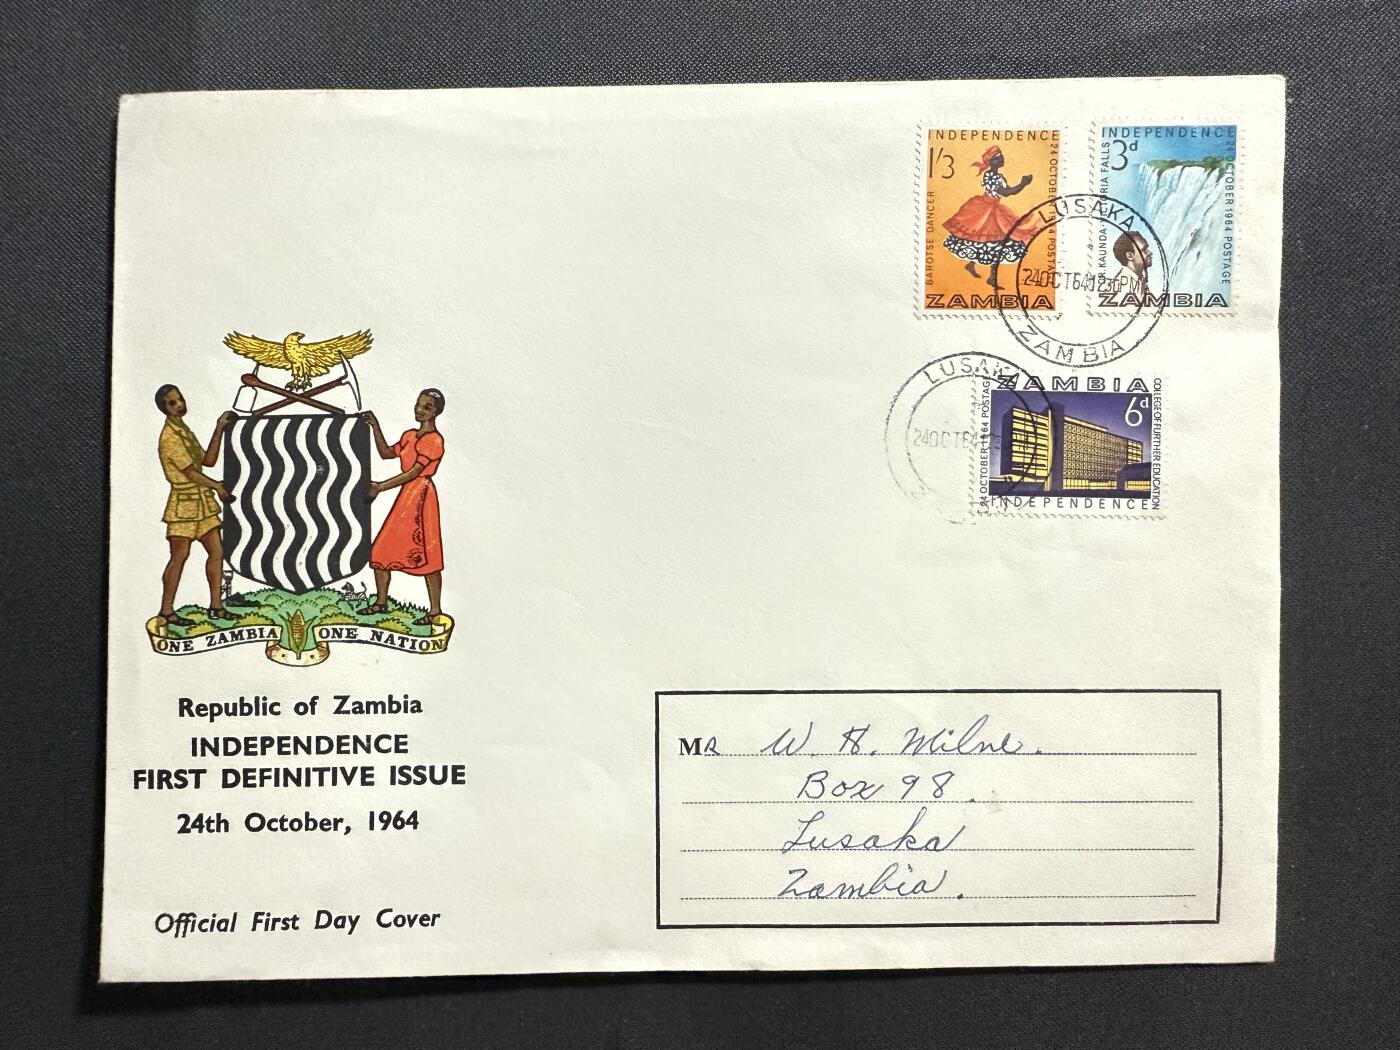 INDEPENDENCE
1/3
BAROTSE DANCER
24 OCTOBER 1964 POSTAGE
ZAMBIA
INDEPENDENCE
3d
DR. KAUNDA · VICTORIA FALLS
24 OCTOBER 1964 POSTAGE
ZAMBIA
LUSAKA
24OCT64 12 30PM
ZAMBIA
LUSAKA
24OCT64
ZAMBIA
6d
24 OCTOBER 1964 POSTAGE
COLLEGE OF FURTHER EDUCATION
INDEPENDENCE
ONE ZAMBIA ONE NATION
Republic of Zambia
INDEPENDENCE
FIRST DEFINITIVE ISSUE
24th October, 1964
Official First Day Cover
MR W. H. Milne.
Box 98.
Lusaka
Zambia.